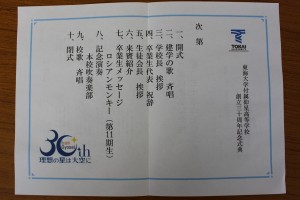 TOKAI
東海大学付属仰星高等学校
創立三十周年記念式典
次第
一、開式
二、建学の歌 斉唱
三、学校長 挨拶
四、卒業生代表 祝辞
五、生徒会長 挨拶
六、来賓紹介
七、卒業生メッセージ
ロシアンモンキー(第11期生)
八、記念演奏
本校吹奏楽部
九、校歌 斉唱
十、閉式
30th
理想の星は大空に